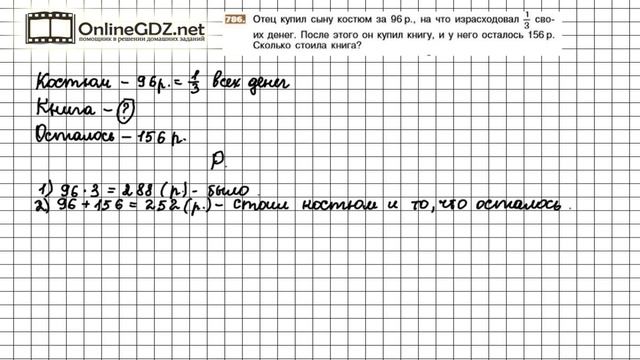 OnlineGDZ.net
помощник в решении домашних заданий
786. Отец купил сыну костюм за 96 р., на что израсходовал 1/3 сво-
их денег. После этого он купил книгу, и у него осталось 156 р.
Сколько стоила книга?
Костюм – 96р. = 1/3 всех денег
Книга – ?
Осталось – 156 р.
Р.
1) 96 · 3 = 288 (р.) – было.
2) 96 + 156 = 252 (р.) – стоил костюм и то, что осталось.